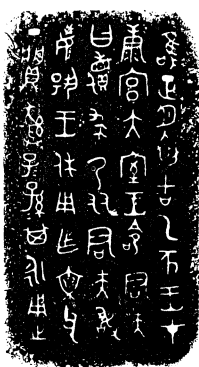 隹正月初吉乙亥王才
康宮大室王命君夫
曰儥求乃友君夫敢
揚王休用乍文父
丁彝子孫其永用之